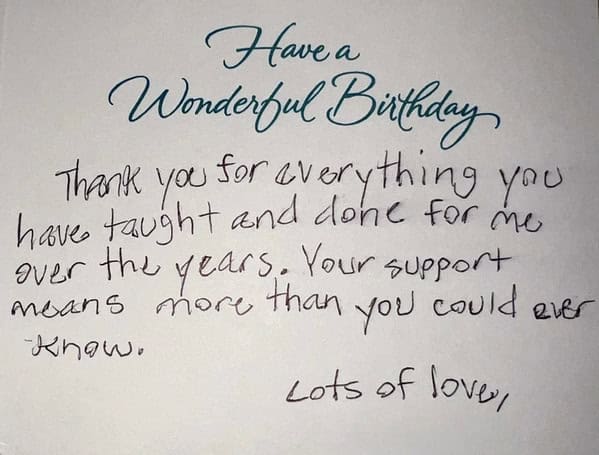 Have a
Wonderful Birthday
Thank you for everything you
have taught and done for me
over the years. Your support
means more than you could ever
know.
Lots of love,